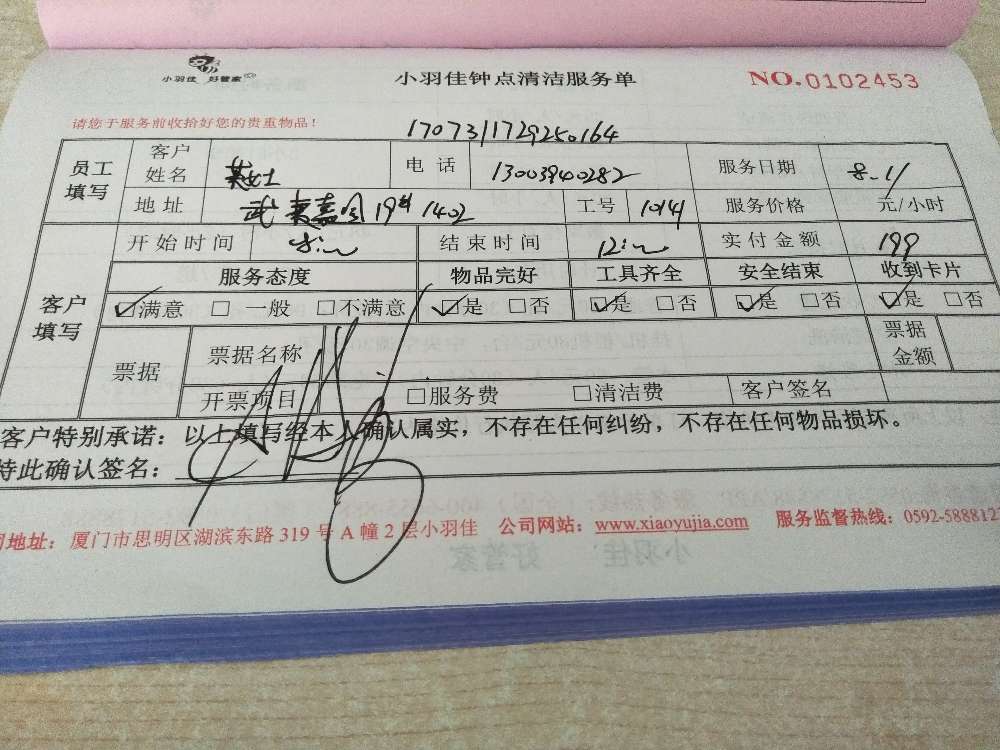 小羽佳 好管家
小羽佳钟点清洁服务单 NO.0102453
请您于服务前收拾好您的贵重物品!
1707311729250164
员工填写 客户姓名 电话 13003940282 服务日期 8.1
地址 19# 1402 工号 10141 服务价格 元/小时
客户填写 开始时间 结束时间 实付金额 199
服务态度 物品完好 工具齐全 安全结束 收到卡片
☑满意 □一般 □不满意 ☑是 □否 ☑是 □否 ☑是 □否 ☑是 □否
票据 票据名称 票据金额
开票项目 □服务费 □清洁费 客户签名
客户特别承诺:以上填写经本人确认属实,不存在任何纠纷,不存在任何物品损坏。
特此确认签名:
地址:厦门市思明区湖滨东路 319 号 A 幢 2 层小羽佳 公司网站:www.xiaoyujia.com 服务监督热线:0592-588812